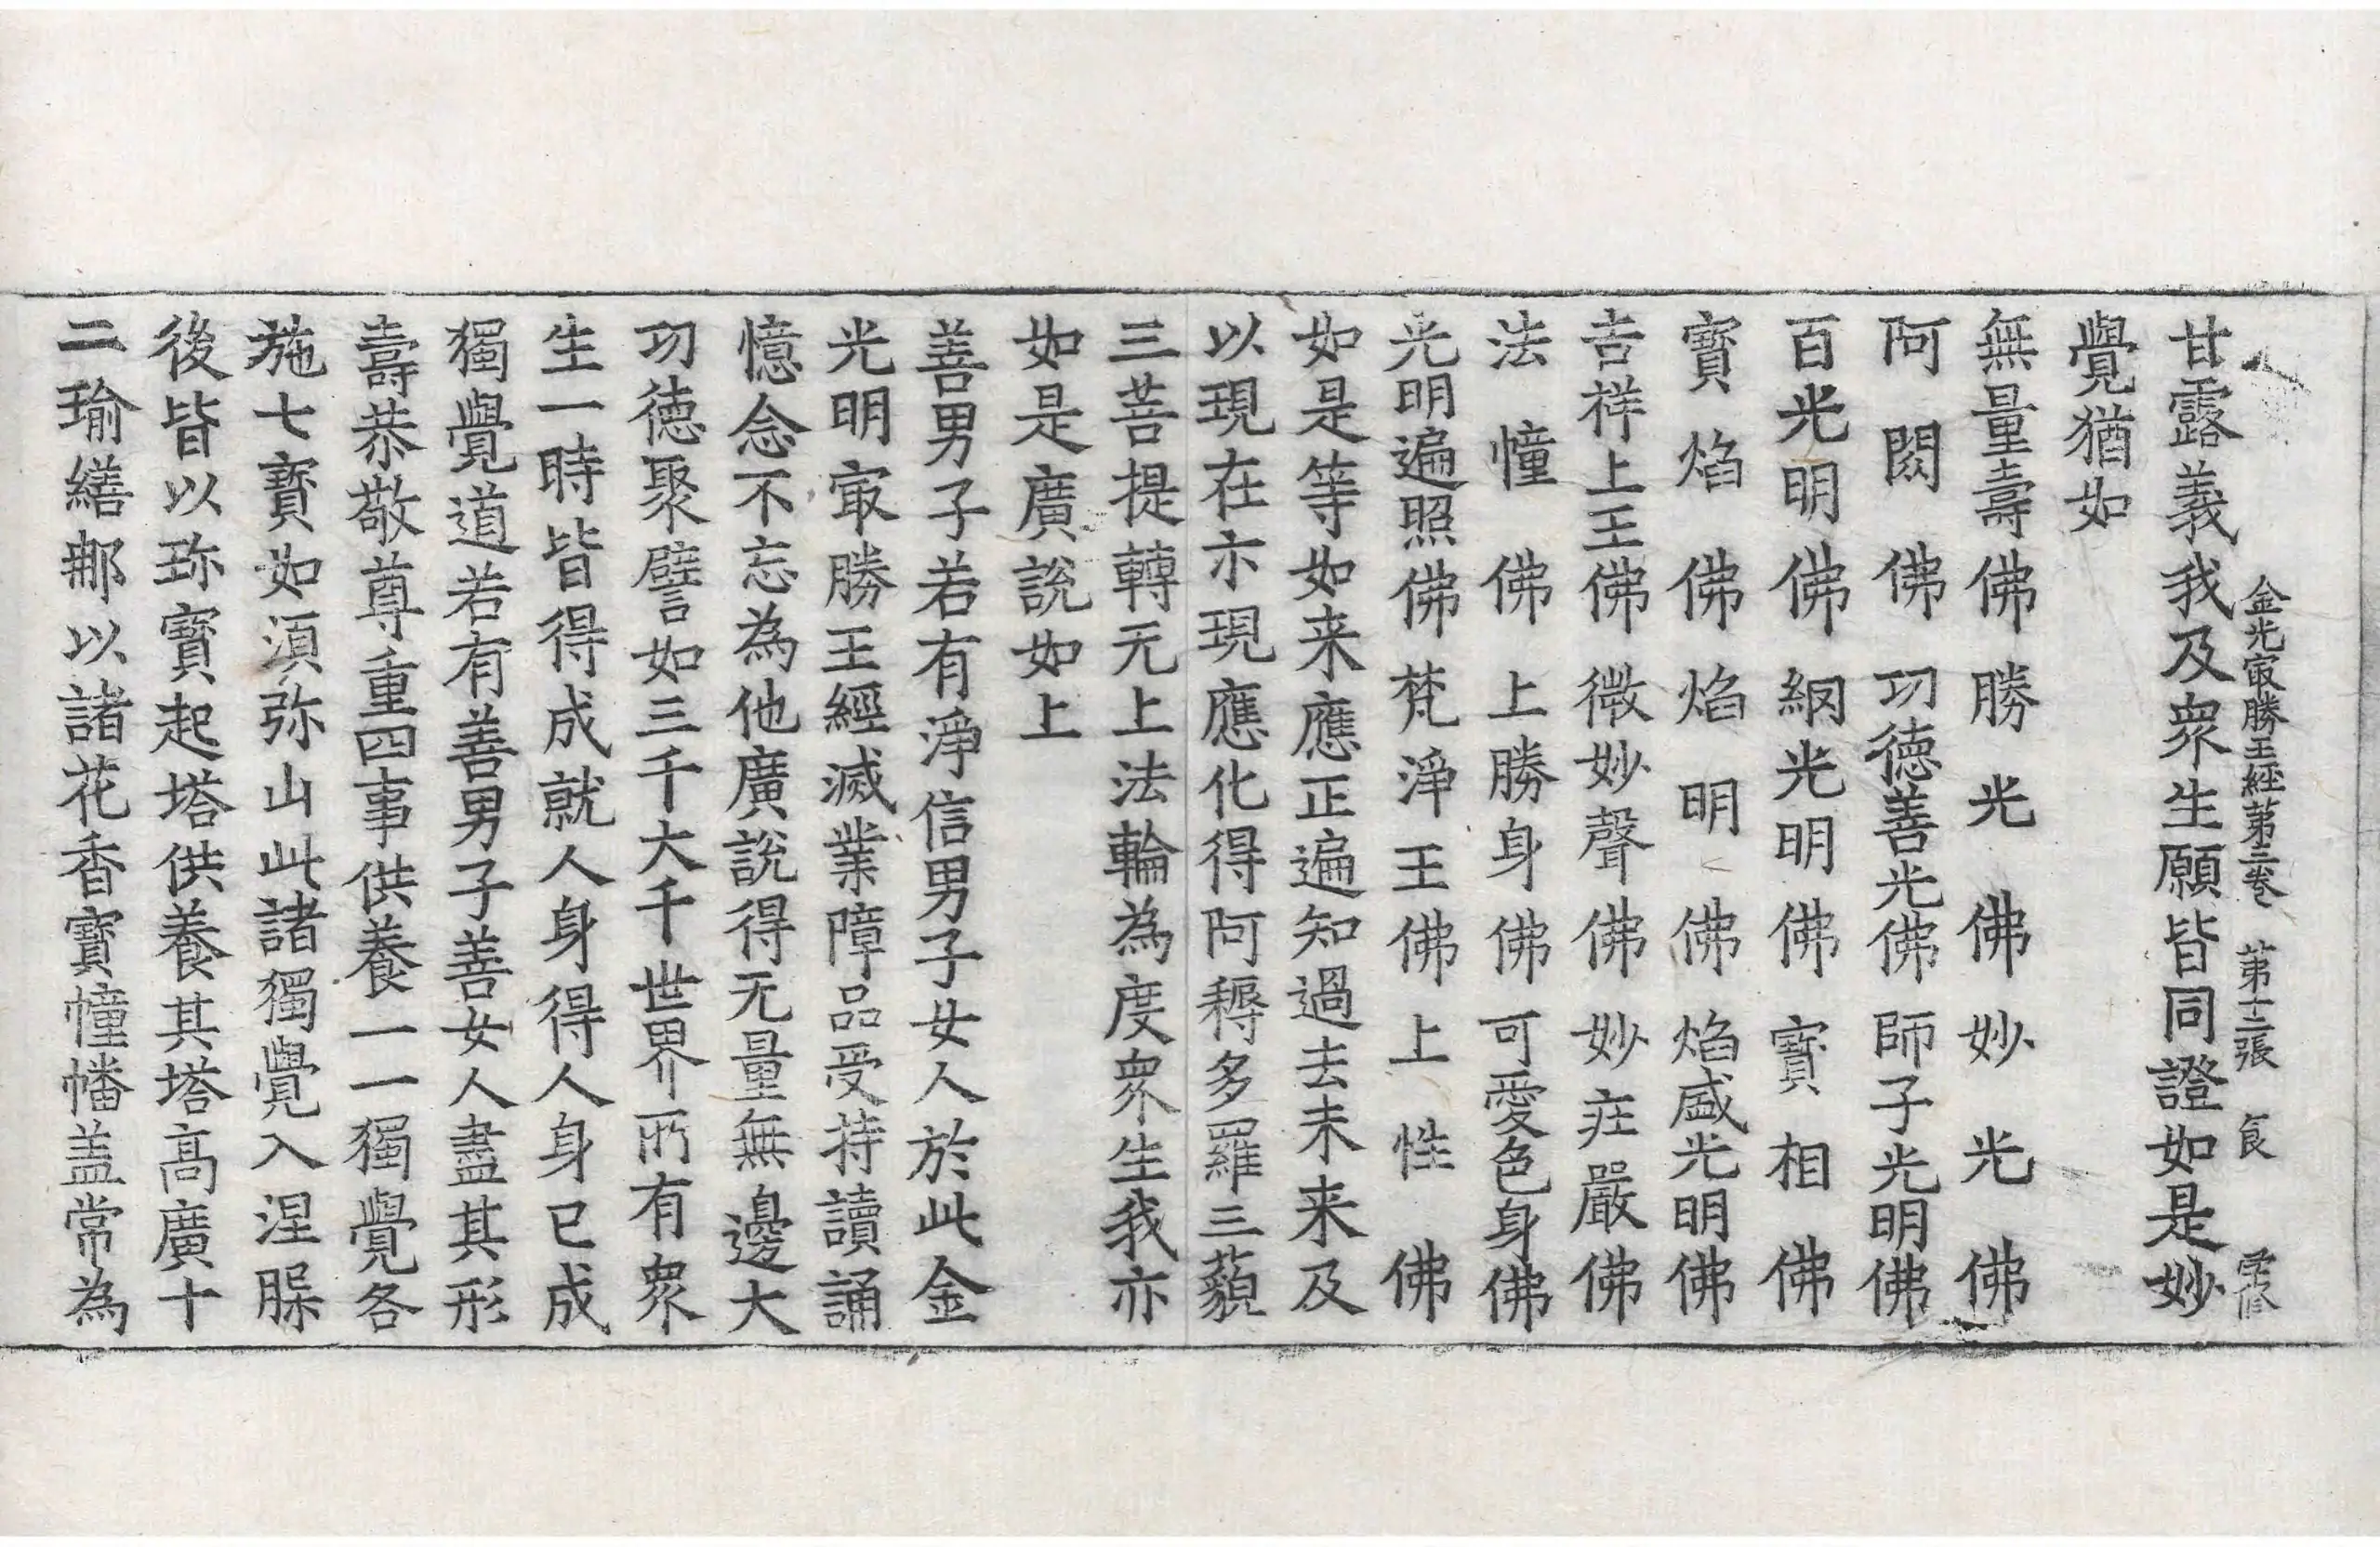 金光㝡勝王經第三卷 第十二張 食
甘露義我及衆生願皆同證如是妙
覺猶如
無量壽佛 勝光佛 妙光佛
阿閦佛 功德善光佛 師子光明佛
百光明佛 網光明佛 寶相佛
寳焰佛 焰明佛 焰盛光明佛
吉祥上王佛 微妙聲佛 妙莊嚴佛
法幢佛 上勝身佛 可愛色身佛
光明遍照佛 梵淨王佛 上性佛
如是等如来應正遍知過去未来及
以現在亦現應化得阿耨多羅三藐
三菩提轉无上法輪為度衆生我亦
如是廣說如上
善男子若有淨信男子女人於此金
光明㝡勝王經滅業障品受持讀誦
憶念不忘為他廣說得无量無邊大
功德聚譬如三千大千世界所有衆
生一時皆得成就人身得人身已成
獨覺道若有善男子善女人盡其形
壽恭敬尊重四事供養一一獨覺各
施七寳如湏弥山此諸獨覺入涅槃
後皆以珎寳起塔供養其塔高廣十
二瑜繕那以諸花香寳幢幡盖常為